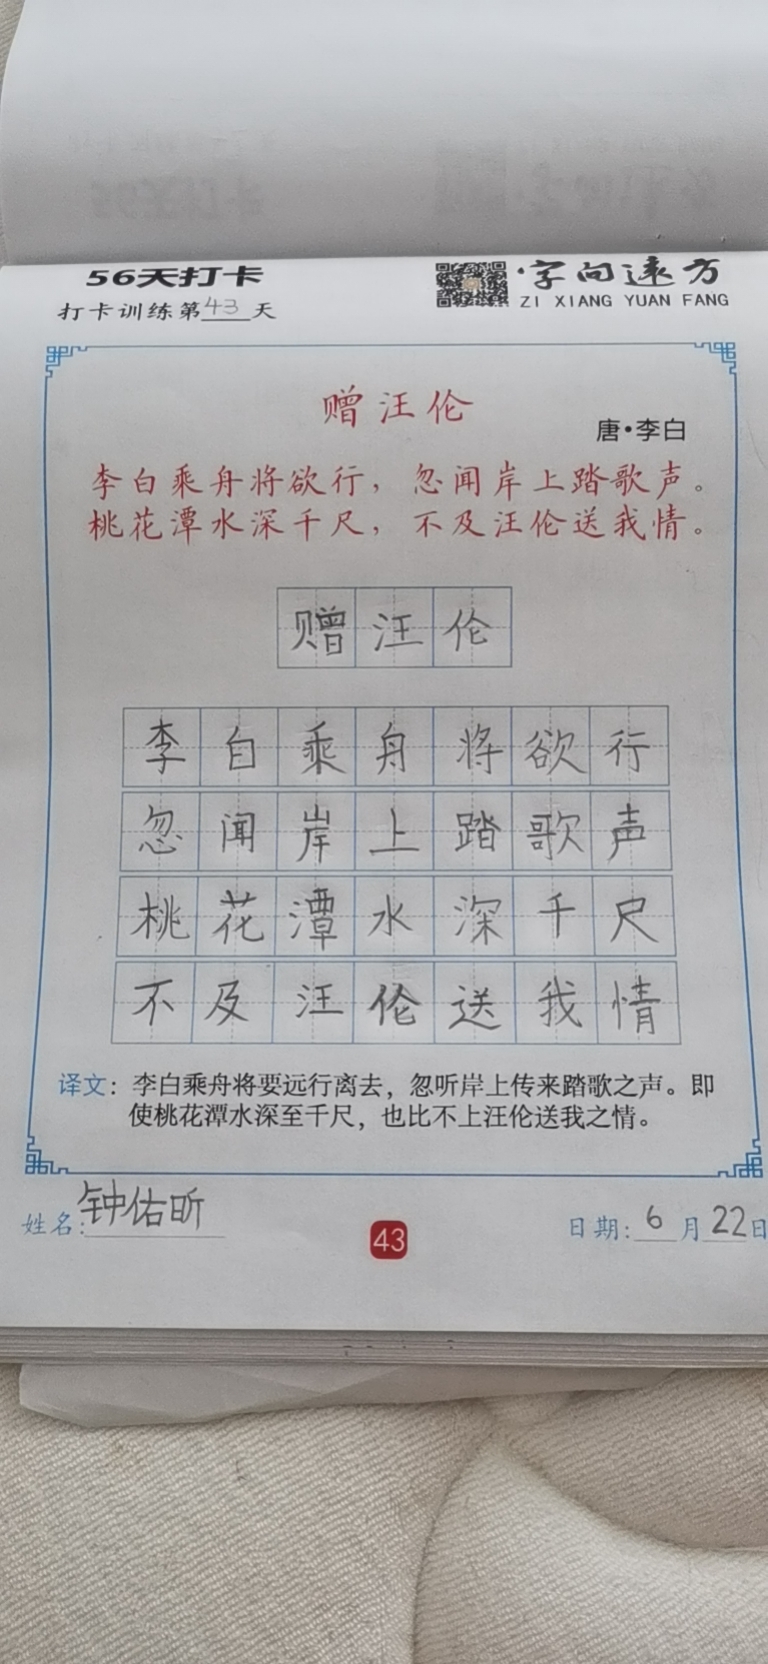 56天打卡
打卡训练第43天
字向远方
ZI XIANG YUAN FANG
赠汪伦
唐·李白
李白乘舟将欲行，忽闻岸上踏歌声。
桃花潭水深千尺，不及汪伦送我情。
赠汪伦
李自乘舟将欲行
忽闻岸上踏歌声
桃花潭水深千尺
不及汪伦送我情
译文：李白乘舟将要远行离去，忽听岸上传来踏歌之声。即
使桃花潭水深至千尺，也比不上汪伦送我之情。
姓名：钟佑昕
43
日期：6月22日